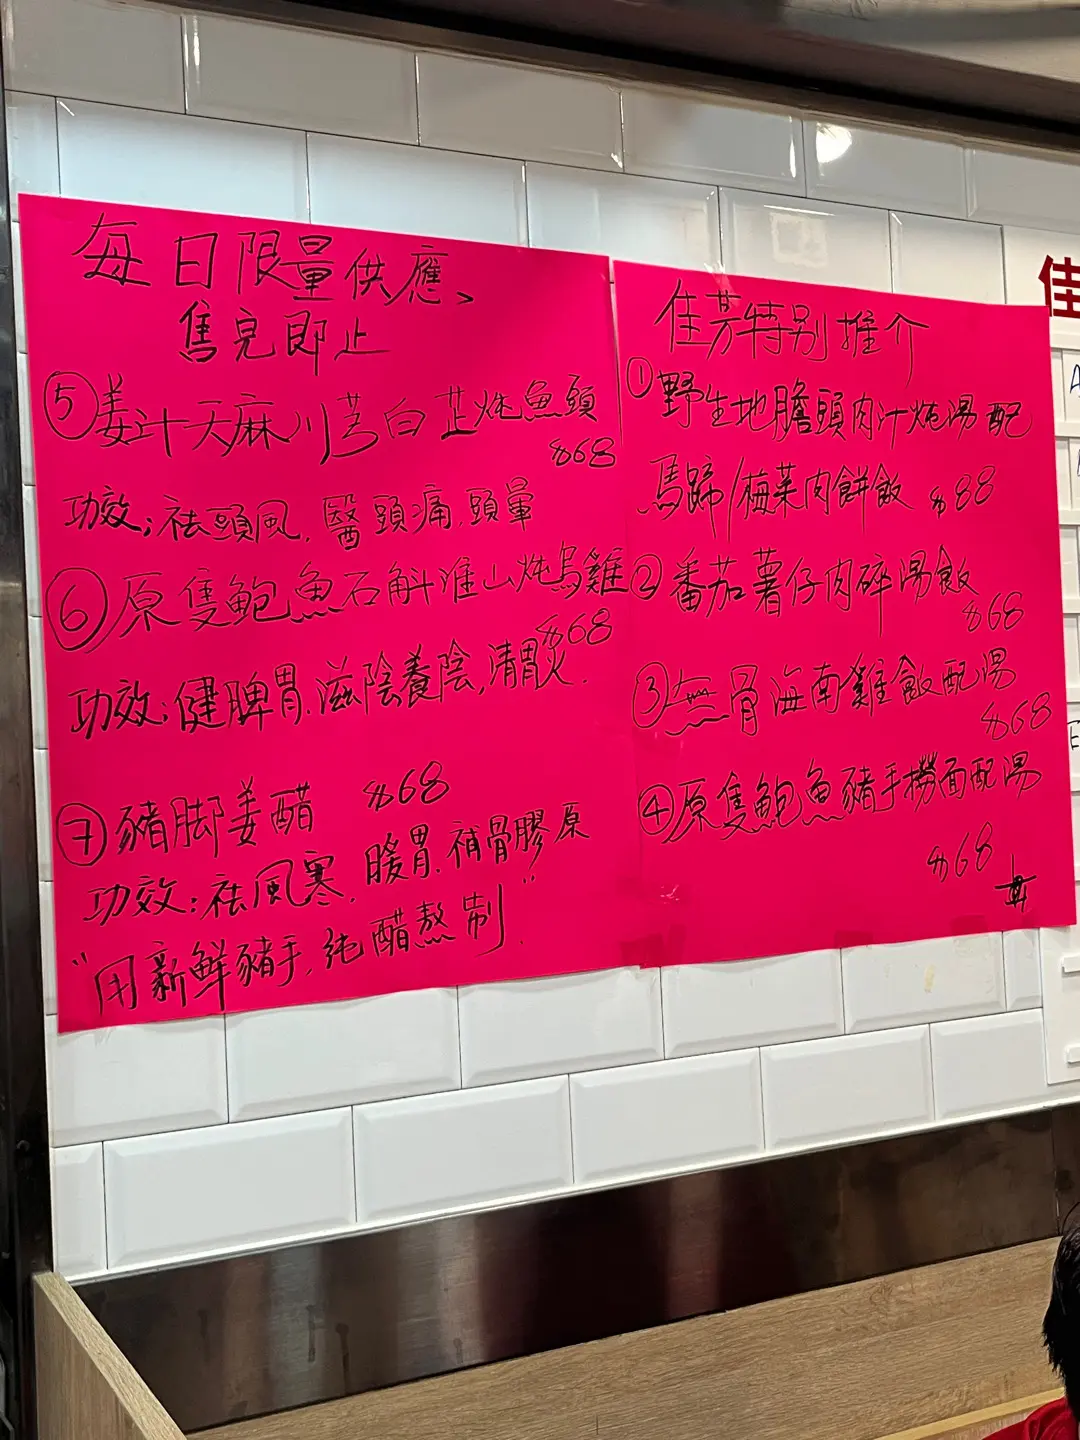 每日限量供應、
售完即止
⑤姜汁天麻川芎白芷炖魚頭
$68
功效:祛頭風,醫頭痛.頭暈
⑥原隻鮑魚石斛淮山炖烏雞
$68
功效:健脾胃.滋陰養陰,清胃火.
⑦豬脚姜醋 $68
功效:祛風寒.暖胃.補骨膠原
"用新鮮豬手,純醋熬制"
佳芳特别推介
①野生地膽頭肉汁炖湯配
馬蹄/梅菜肉餅飯 $88
②番茄薯仔肉碎湯飯
$68
③無骨海南雞飯配湯
$68
④原隻鮑魚豬手撈面配湯
$68
佳